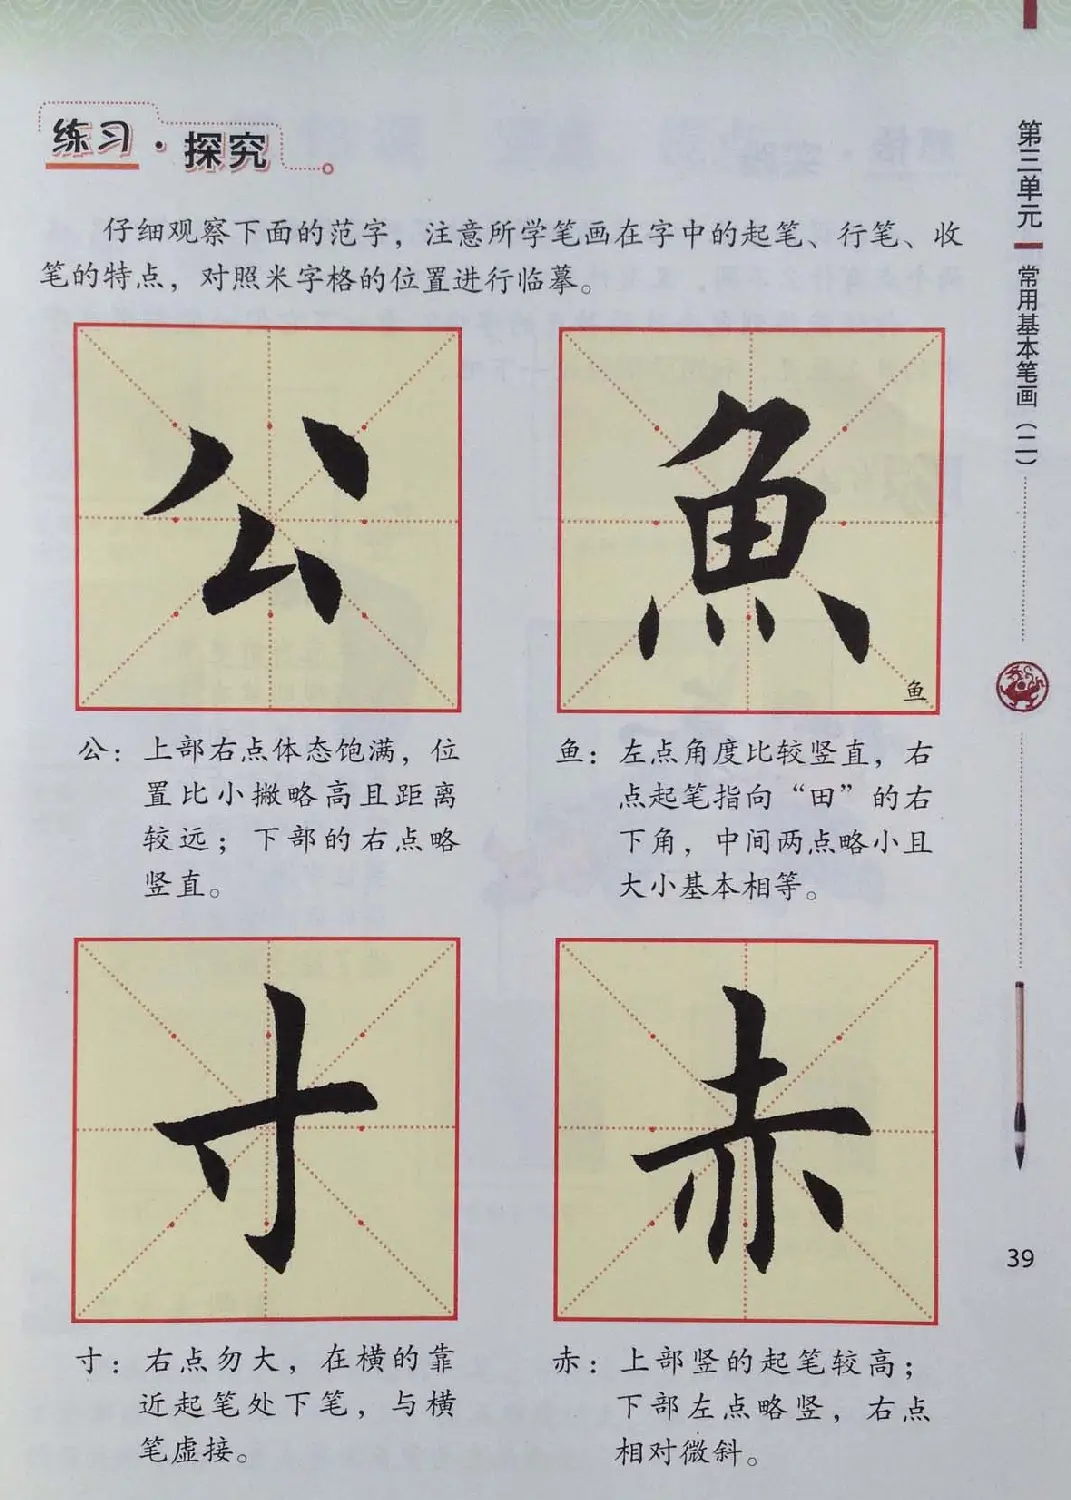 练习·探究
仔细观察下面的范字，注意所学笔画在字中的起笔、行笔、收
笔的特点，对照米字格的位置进行临摹。
公
魚
鱼
公：上部右点体态饱满，位
置比小撇略高且距离
较远；下部的右点略
竖直。
鱼：左点角度比较竖直，右
点起笔指向“田”的右
下角，中间两点略小且
大小基本相等。
寸
赤
寸：右点勿大，在横的靠
近起笔处下笔，与横
笔虚接。
赤：上部竖的起笔较高；
下部左点略竖，右点
相对微斜。
第三单元
常用基本笔画（二）
39